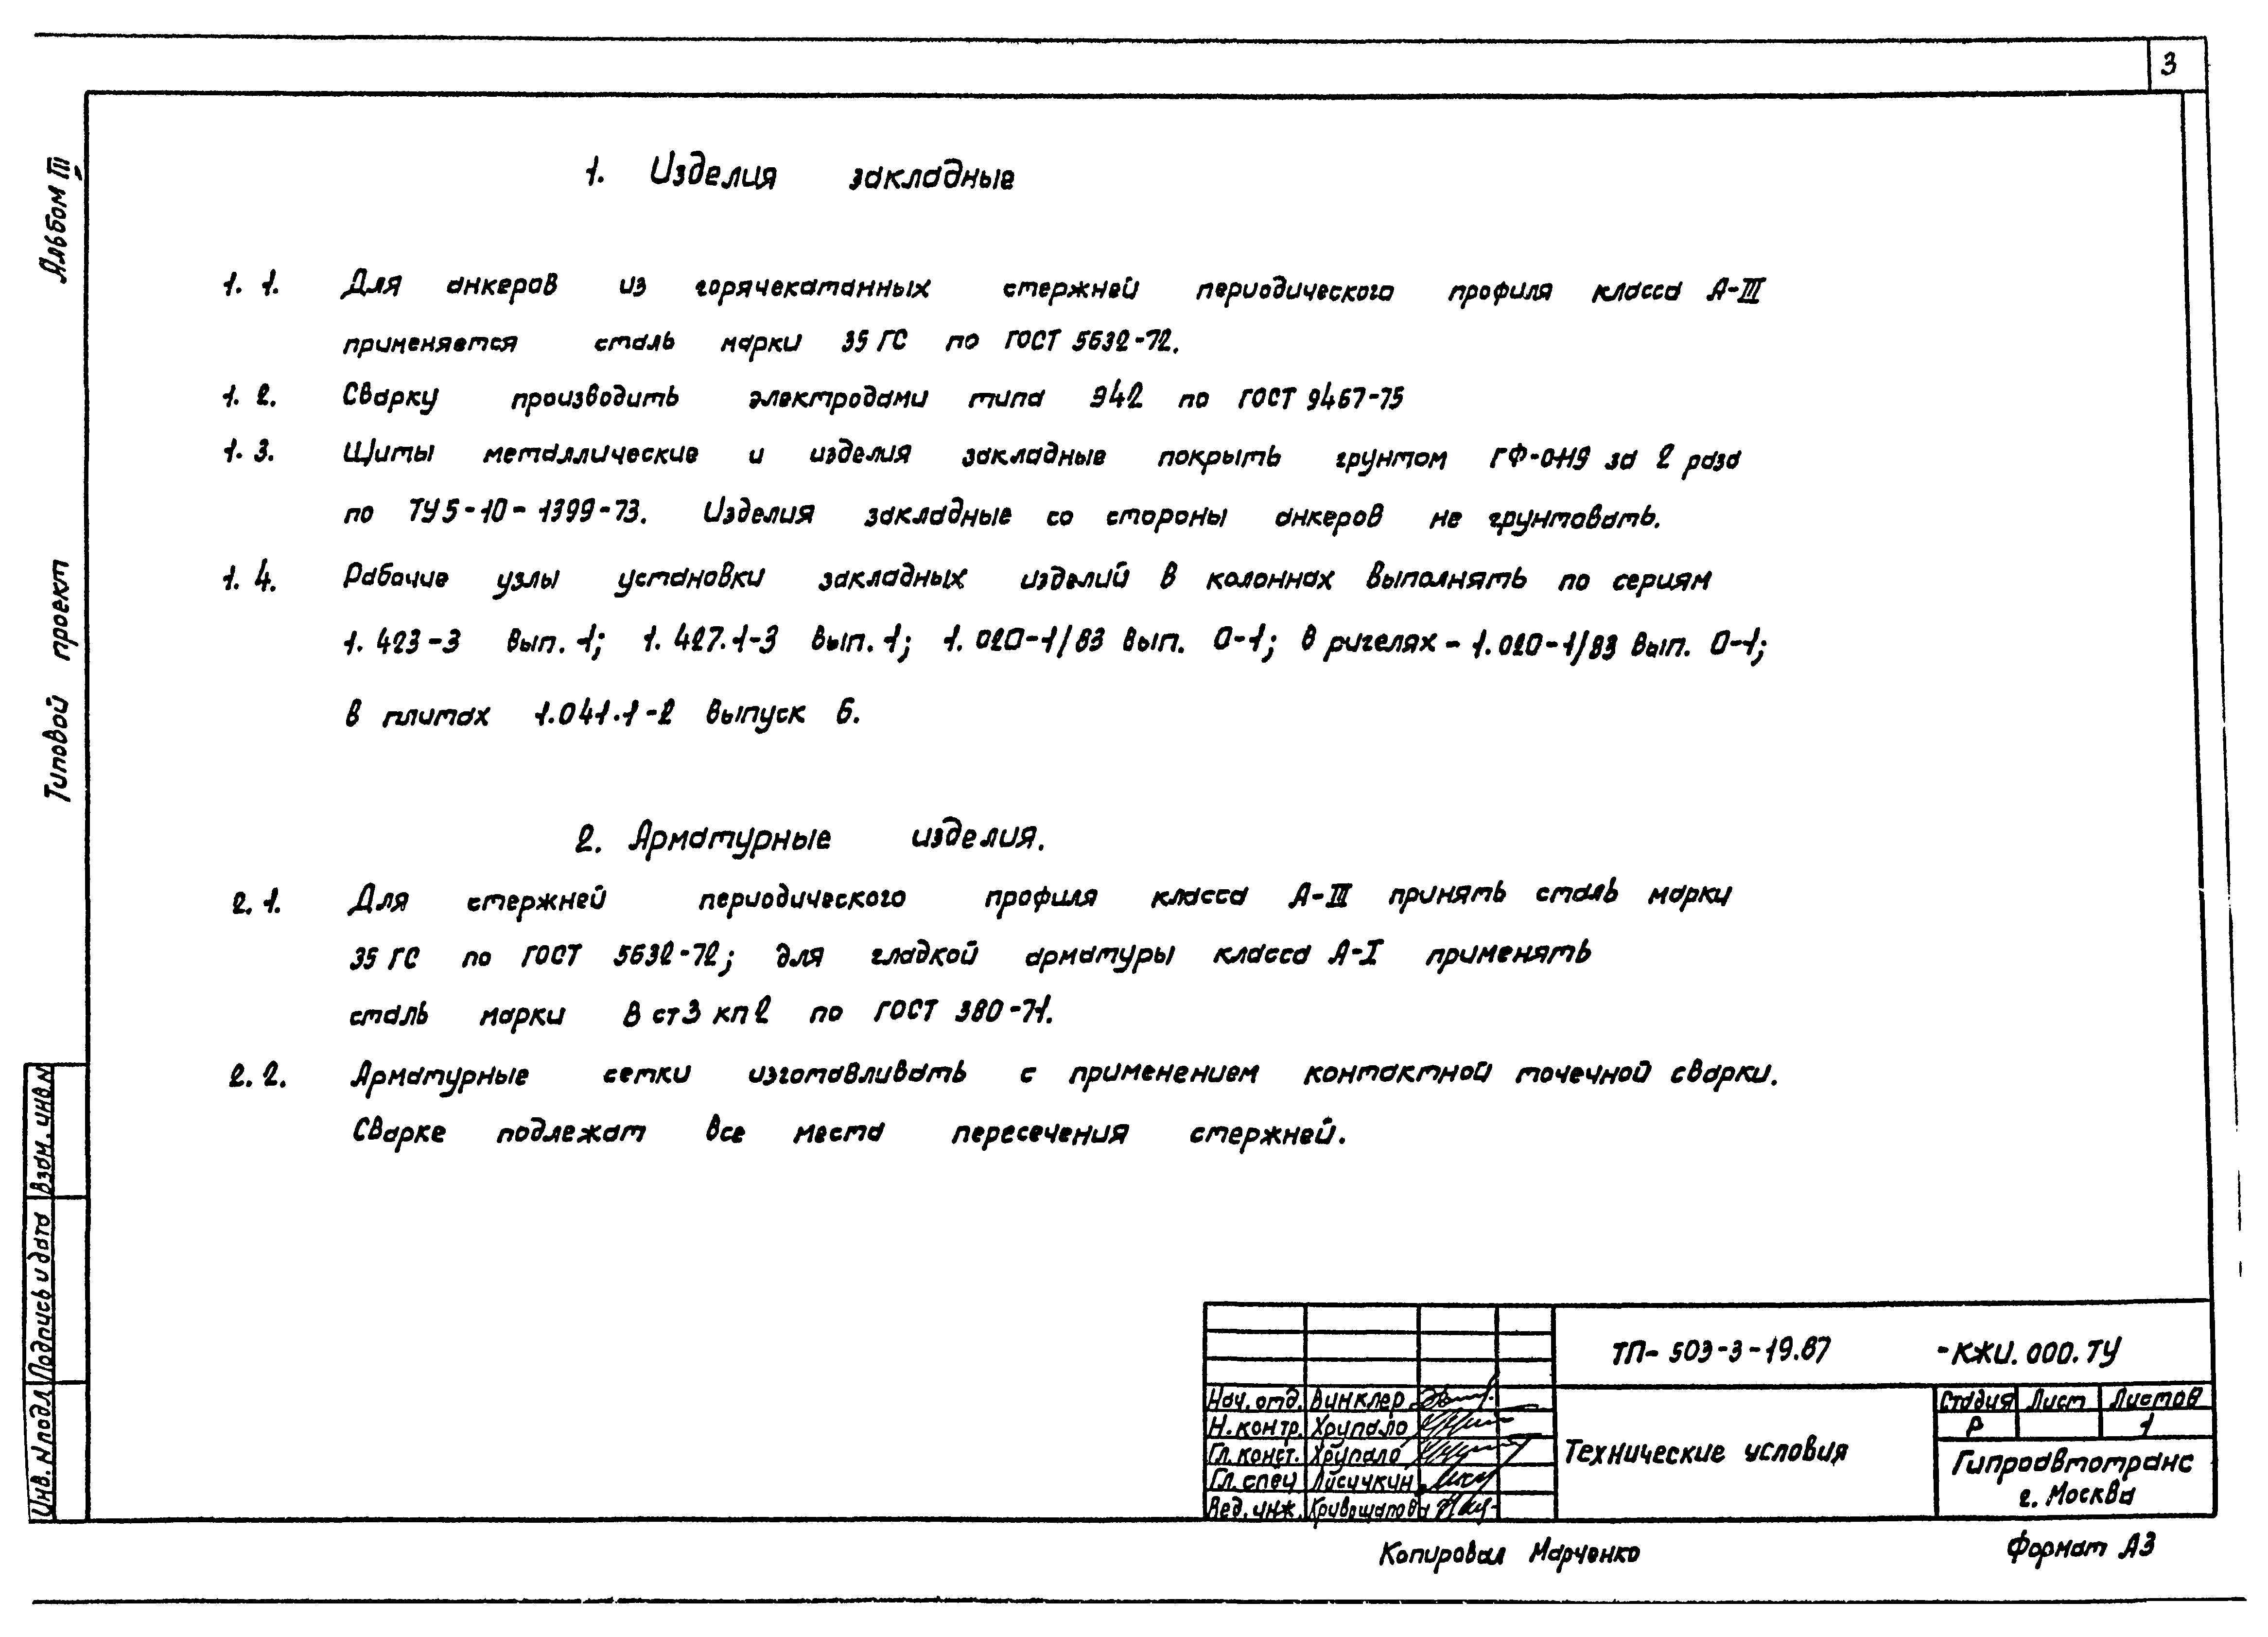 3
Альбом III
Типовой проект
1. Изделия закладные
1.1. Для анкеров из горячекатанных стержней периодического профиля класса А-III
применяется сталь марки 35 ГС по ГОСТ 5632-72.
1.2. Сварку производить электродами типа Э42 по ГОСТ 9467-75
1.3. Щиты металлические и изделия закладные покрыть грунтом ГФ-0119 за 2 раза
по ТУ 5-10-1399-73. Изделия закладные со стороны анкеров не грунтовать.
1.4. Рабочие узлы установки закладных изделий в колоннах выполнять по сериям
1.423-3 вып.-1; 1.427.1-3 вып.1; 1.020-1/83 вып. 0-1; в ригелях - 1.020-1/83 вып. 0-1;
в плитах 1.041.1-2 выпуск 6.
2. Арматурные изделия.
2.1. Для стержней периодического профиля класса А-III принять сталь марки
35 ГС по ГОСТ 5632-72; для гладкой арматуры класса А-I применять
сталь марки В ст 3 кп 2 по ГОСТ 380-71.
2.2. Арматурные сетки изготавливать с применением контактной точечной сварки.
Сварке подлежат все места пересечения стержней.
Взам. инв. N
Подпись и дата
Инв. N подл.
ТП- 503-3-19.87 -КЖИ.000.ТУ
Нач. отд. Винклер
Н. контр. Хрупало
Гл. конст. Хрупало
Гл. спец Лисичкин
Вед. инж.
Технические условия
Стадия Лист Листов
Р 1
Гипроавтотранс
г. Москва
Копировал Марченко
Формат А3